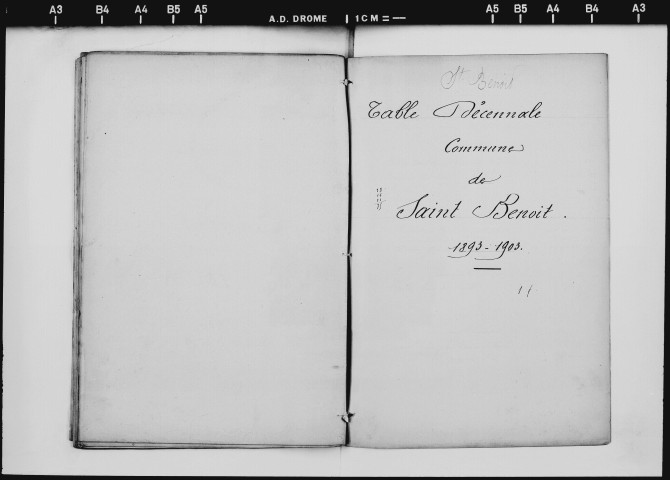 A3 B4 A4 B5 A5 A.D. DROME 1CM A5 B5 A4 B4 A3
St Benoit
Table Décennale
Commune
de
Saint Benoit.
1893-1903.